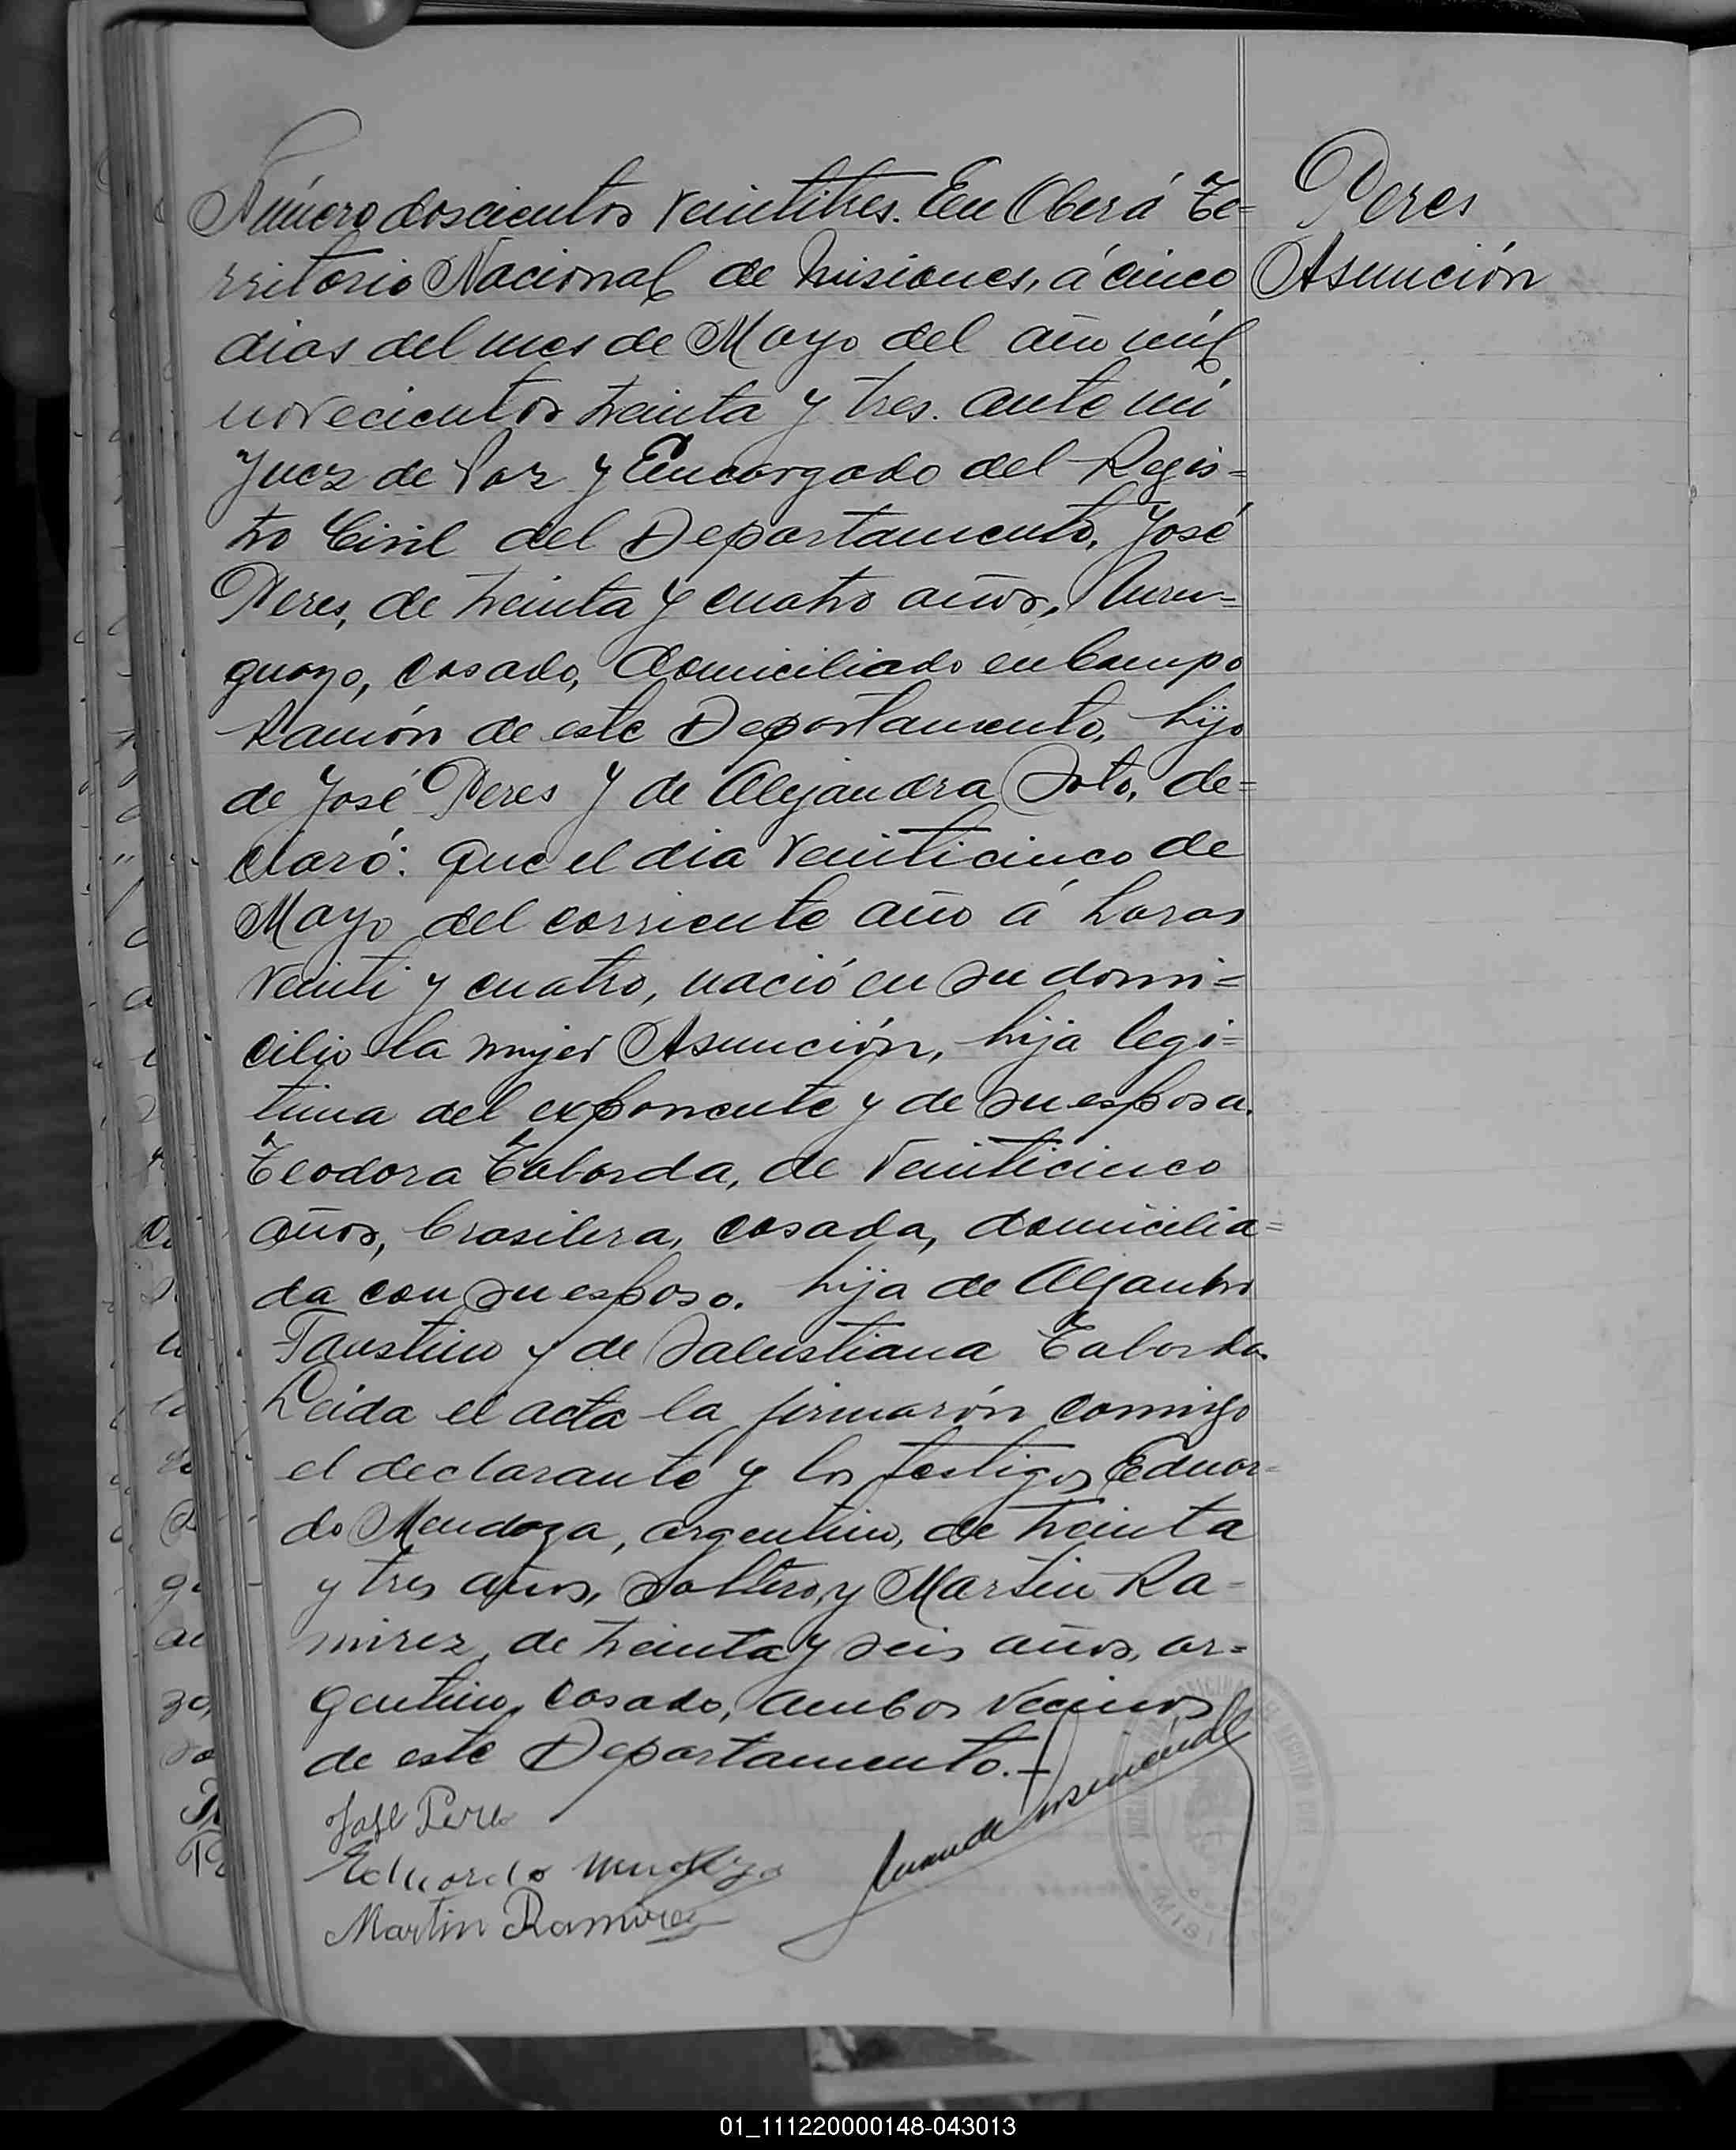 Número doscientos veintitres. En Oberá Te=
rritorio Nacional de Misiones, á cinco
dias del mes de Mayo del año mil
novecientos treinta y tres. ante mi
Juez de Paz y Encargado del Regis=
tro Civil del Departamento, José
Peres, de treinta y cuatro años, Uru=
guayo, casado, domiciliado en Campo
Ramón de este Departamento, hijo
de José Peres y de Alejandra Soto, de=
claró: Que el dia veinticinco de
Mayo del corriente año á horas
veinti y cuatro, nació en su domi=
cilio la mujer Asunción, hija legi=
tima del exponente y de su esposa.
Teodora Taborda, de veinticinco
años, brasilera, casada, domicilia=
da con su esposo. hija de Aljantro
Faustino y de Salustiana Taborda
Leida el acta la firmarón comigo
el declarante y los testigos Eduar=
do Mendoza, argentino, de treinta
y tres años, soltero, y Martin Ra=
mirez, de treinta y seis años, ar=
gentino, casado, ambos vecinos
de este Departamento.-
José Peres
Eduardo Mendoza
Martin Ramirez
Peres
Asunción
01_111220000148-043013